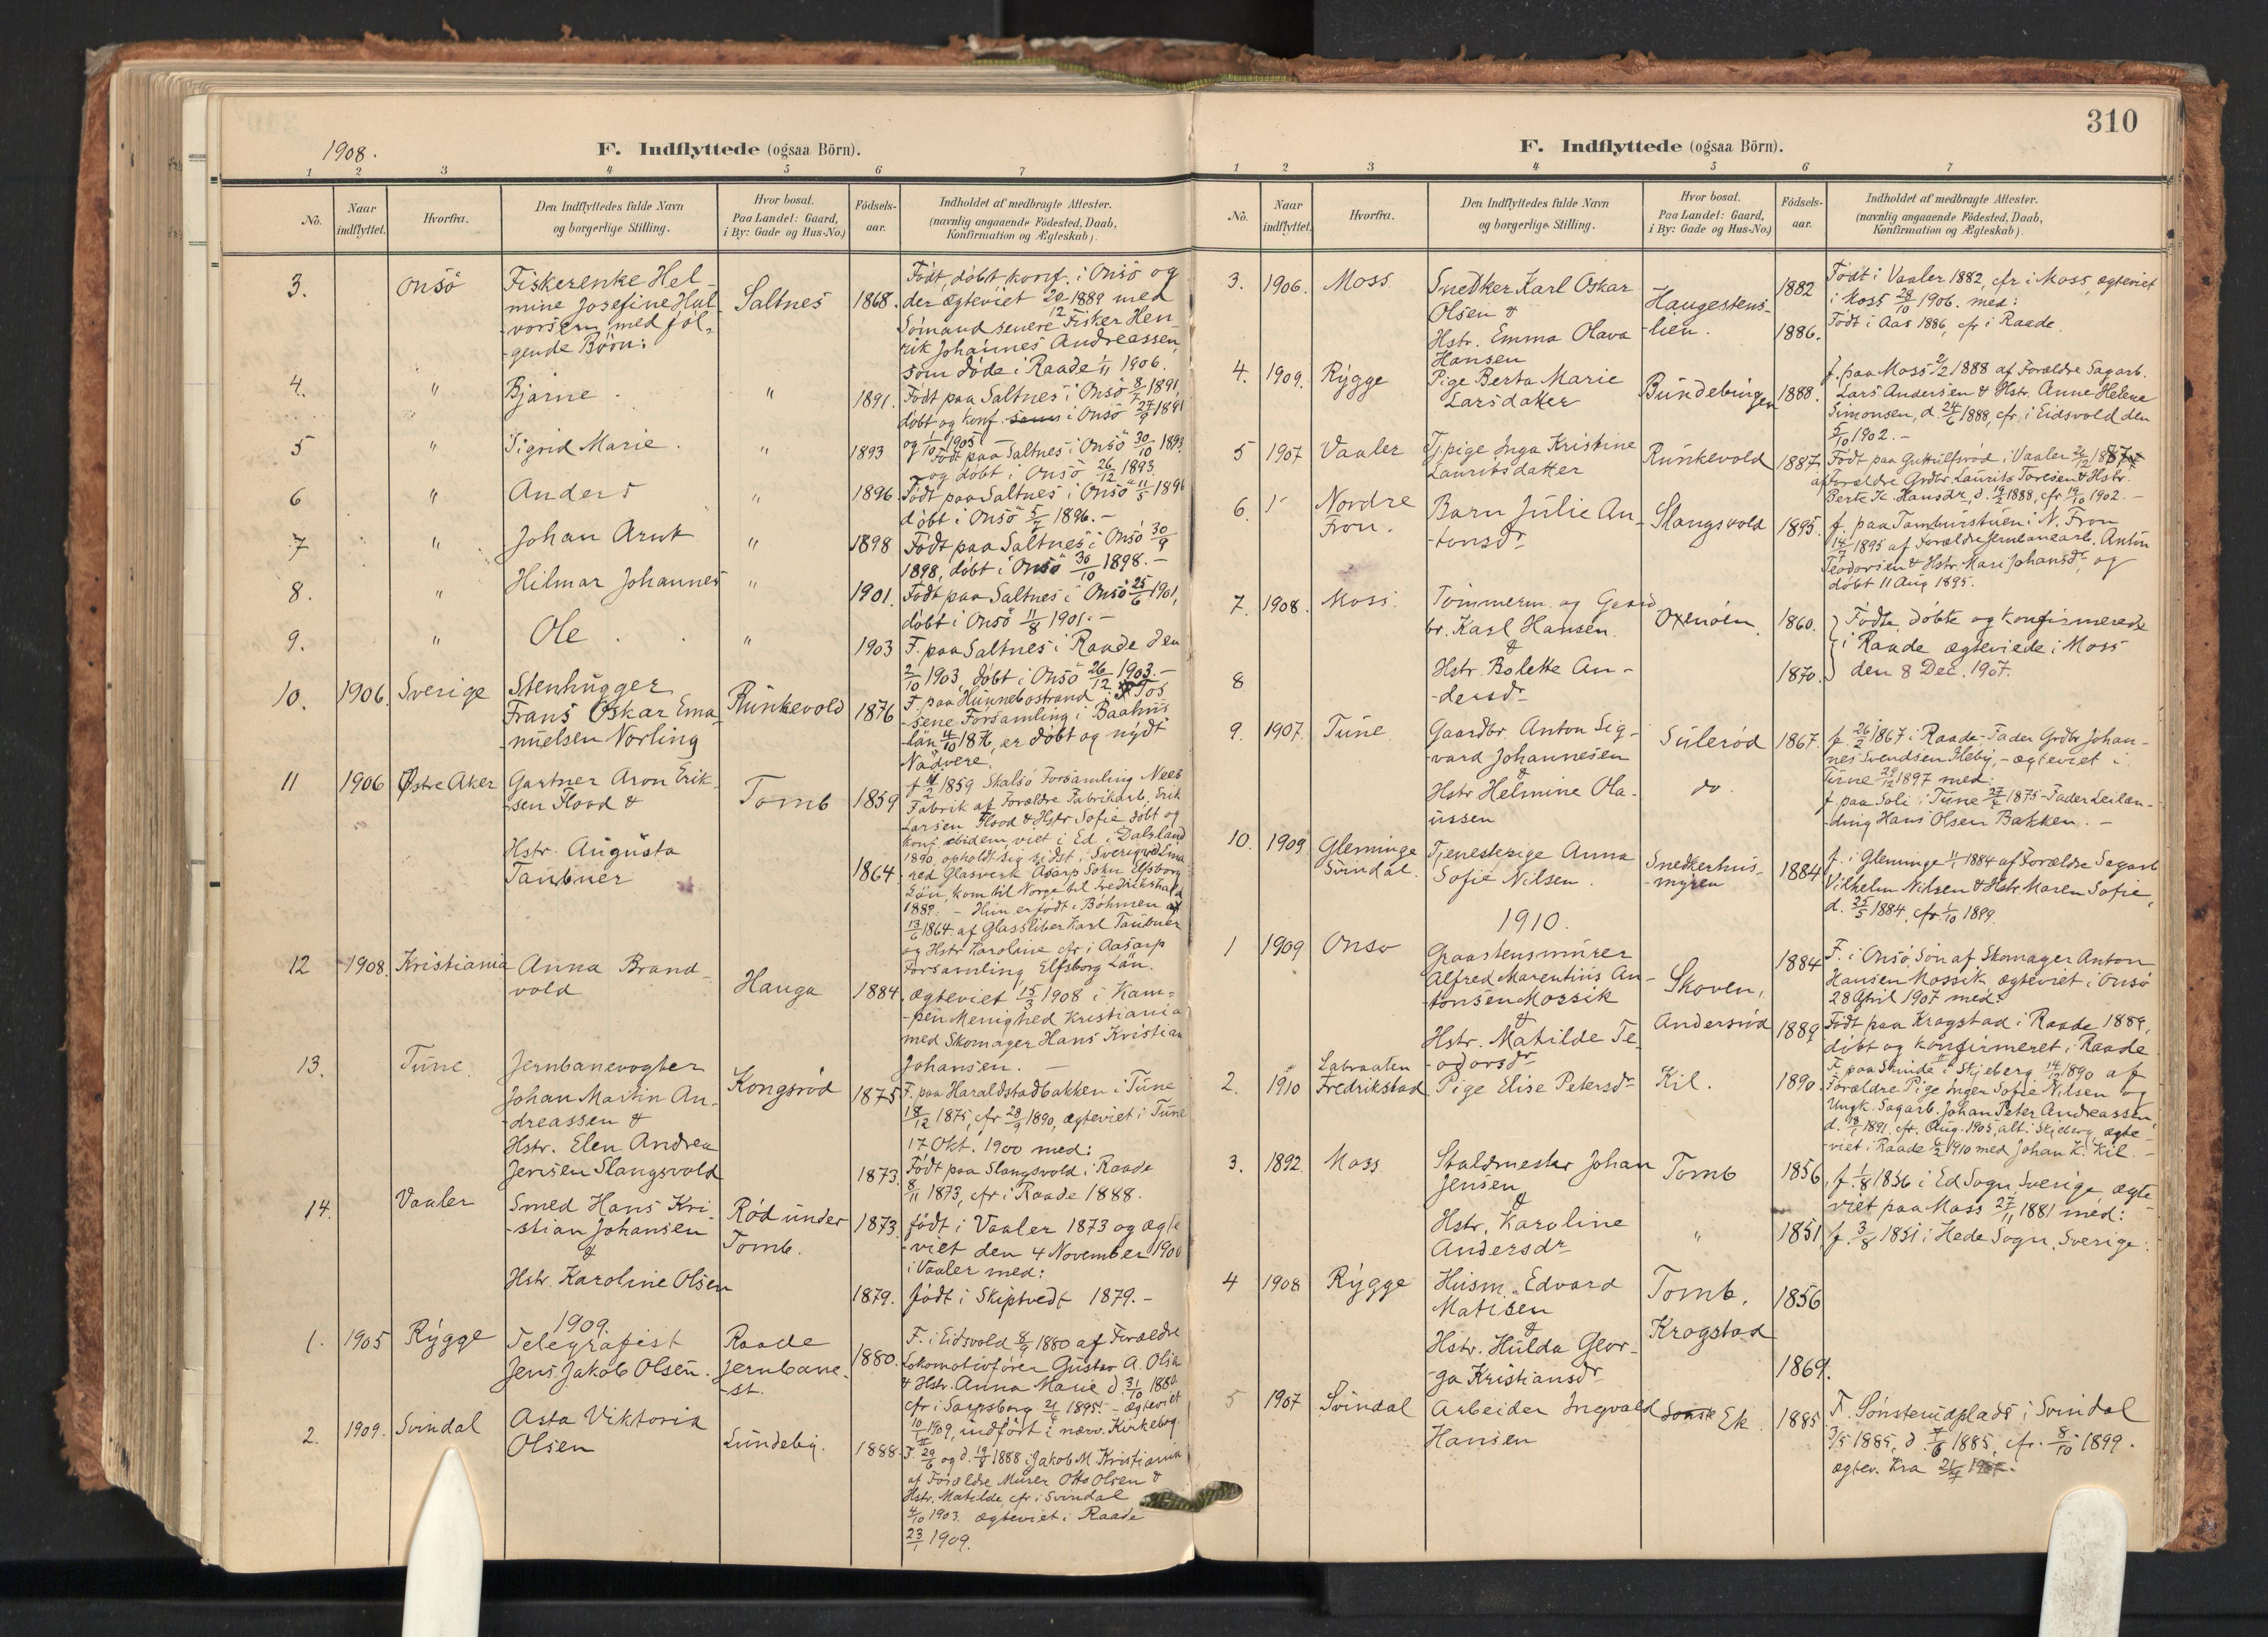 1908.
F. Indflyttede (ogsaa Börn).
1 2 3 4 5 6 7
No.
Naar indflyttet.
Hvorfra.
Den Indflyttedes fulde Navn og borgerlige Stilling.
Hvor bosat. Paa Landet: Gaard, i By: Gade og Hus-No.)
Födsels-aar.
Indholdet af medbragte Attester. (navnlig angaaende Födested, Daab, Konfirmation og Ægteskab).
3. Onsö Fiskerenke Hel-
mine Josefine Hal-
vorsen med föl-
gende Börn:
Saltnes 1868.
Födt, döbt, konf. i Onsö og
der ægteviet 20/12 1889 med
Sömand senere Fisker Hen-
rik Johannes Andreassen,
som döde i Raade 1/11 1906.
4. " Bjarne. " 1891.
Födt paa Saltnes i Onsö 8/7 1891,
döbt og konf. i Onsö 27/9 1891
og 1/10 1905. –
5 " Sigrid Marie. " 1893
Födt paa Saltnes i Onsö 30/10 1893,
og döbt i Onsö 26/12 1893.
6 " Anders " 1896.
Födt paa Saltnes i Onsö 11/5 1896
döbt i Onsö 5/7 1896. –
7 " Johan Arnt " 1898
Födt paa Saltnes i Onsö 30/9
1898, döbt i Onsö 30/10 1898. –
8. " Hilmar Johannes " 1901.
Födt paa Saltnes i Onsö 25/6 1901,
döbt i Onsö 11/8 1901. –
9. " Ole " 1903
F. paa Saltnes i Raade den
2/10 1903, döbt i Onsö 26/12 1903. –
10. 1906. Sverige Stenhugger
Frans Oskar Ema-
nuelsen Norling
Runkevold 1876
F. paa Hunnebostrand i Tos-
sene Forsamling i Baahus
län 4/10 1876, er döbt og nydt
Nadvere.
11 1906 Østre Aker Gartner Aron Erik-
sen Flood &
Tomb 1859
1859 Skalsö Forsamling Nees
Fabrik af Forældre Fabrikarb. Erik
Larsen Flood & Hstr Sofie döbt og
konf. ibidem, viet i Ed i Dalsland
1890, opholdt sig sidst i Sverige ved Lima-
red Glasverk Aasarp Sokn Elfsborg
Län, kom til Norge til Fredrikshald
Hstr. Augusta
Taubner
1864
– Hun er födt i Böhmen
13/6 1864 af Glassliber Karl Taubner
og Hstr Karoline cfr i Aasarp
Forsamling Elfsborg Län.
12 1908. Kristiania Anna Brand-
vold
Hauga 1884.
ægteviet 15/3 1908 i Kam-
pen Menighed Kristiania
med Skomager Hans Kristian
Johansen. –
13. Tune. Jernbanevogter
Johan Martin An-
dreassen &
Hstr. Elen Andrea
Jensen Slangsvold
Kongsröd 1875
F. paa Haraldstadbakken i Tune
18/12 1875, cfr 28/9 1890, ægteviet i Tune
17 Okt. 1900 med:
1873.
Födt paa Slangsvold i Raade
8/11 1873, cfr i Raade 1888.
14. Vaaler Smed Hans Kri-
stian Johansen
&
Hstr. Karoline Olsen
Röd under
Tomb.
1873.
födt i Vaaler 1873 og ægte-
viet den 4 November 1900
i Vaaler med:
1879. födt i Skiptvedt 1879. –
1909.
1. 1905 Rygge Telegrafist
Jens Jakob Olsen.
Raade
Jernbane-
st.
1880.
F. i Eidsvold 8/9 1880 af Forældre
Lokomotivförer Gustav A. Olsen
& Hstr. Anna Marie d. 31/10 1880
cfr i Sarpsborg 1895. – ægteviet
1909, indfört i nærv. Kirkebog.
2. 1909. Svindal Asta Viktoria
Olsen
Lundeby. 1888.
F. 29/6 og d. 19/8 1888 i Jakob M. Kristiania
af Forældre Murer Otto Olsen &
Hstr. Matilde, cfr i Svindal
4/10 1903. ægteviet i Raade
23/1 1909.
310
F. Indflyttede (ogsaa Börn).
1 2 3 4 5 6 7
No.
Naar indflyttet.
Hvorfra.
Den Indflyttedes fulde Navn og borgerlige Stilling.
Hvor bosat. Paa Landet: Gaard, i By: Gade og Hus-No.)
Födsels-aar.
Indholdet af medbragte Attester. (navnlig angaaende Födested, Daab, Konfirmation og Ægteskab).
3. 1906. Moss Snedker Karl Oskar
Olsen &
Hstr. Emma Olava
Hansen
Haugestens-
lien.
1882
Födt i Vaaler 1882, cfr i Moss, ægteviet
i Moss 28/10 1906. med:
1886. Födt i Aas 1886, cfr i Raade.
4. 1909. Rygge Pige Berta Marie
Larsdatter
Bundebingen 1888.
f. paa Moss 2/2 1888 af Forældre Sagarb.
Lars Andersen & Hstr. Anne Helene
Simonsen, d. 24/6 1888, cfr. i Eidsvold den
5/10 1902. –
5 1907 Vaaler Tj.pige Inga Kristine
Lauritsdatter
Runkevold 1887.
Födt paa Guttulfsröd i Vaaler
af Forældre Grdbr. Laurits Toresen & Hstr.
Berte K. Hansdr, d. 19/2 1888, cfr 19/10 1902. –
6. Nordre
Fron.
Barn Julie An-
tonsdr
Slangsvold 1895.
f. paa Tamburstuen i N. Fron
14/7 1895 af Forældre Jernbanearb. Anton
Teodorsen & Hstr. Mari Johansdr og
döbt 11 Aug 1895.
7. 1908. Moss. Tömmerm. og Gaard
br. Karl Hansen.
&
8 Hstr. Bolette An-
dersdr
Oxenöen. 1860.
1870.
Födte, döbte og konfirmerede
i Raade ægteviede i Moss
den 8 Dec. 1907.
9. 1907. Tune Gaardbr. Anton Sig-
vard Johannesen
&
Hstr Helmine Ola-
ussen
Suleröd 1867.
do
f. 26/2 1867 i Raade. Fader Grdbr Johan-
nes Svendsen Heby, – ægteviet i
Tune 29/12 1897 med:
f. paa Soli i Tune 27/4 1875 – Fader Leilæn-
ding Hans Olsen Bakken. –
10. 1909 Glemminge
Svindal.
Tjenestepige Anna
Sofie Nilsen.
Snedkerhus-
myren
1884
f. i Glemminge 1884 af Forældre Sagarb
Vilhelm Nilsen & Hstr. Maren Sofie,
d. 25/5 1884, cfr 1/10 1899
1910.
1 1909 Onsö Graastensmurer
Alfred Marentius An-
tonsen Mossik
&
Hstr. Matilde Te-
odorsdr
Skoven,
Andersröd
1884
F. i Onsö, Sön af Skomager Anton
Hansen Mossik ægteviet i Onsö
28 April 1907 med:
1889
Födt paa Kragstad i Raade 1889,
döbt og konfirmeret i Raade
2. 1910
Fredrikstad
Pige Elise Petersdr Kil. 1890.
F. paa Skinde i Skjeberg 14/12 1890 af
Forældre Pige Inger Sofie Nilsen og
Ungk. Sagarb. Johan Peter Andreassen,
d. 18/1 1891, cfr. Aug. 1905, alt i Skjeberg, ægte-
viet i Raade 6/2 1910 med Johan K. Kil. –
3. 1892. Moss. Staldmester Johan
Jensen
&
Hstr. Karoline
Andersdr
Tomb 1856
f. 1/8 1856 i Ed Sogn, Sverige, ægte-
viet paa Moss 27/11 1881 med:
" 1851 f. 3/8 1851 i Hede Sogn, Sverige.
4 1908 Rygge Husm. Edvard
Matisen
&
Hstr. Hulda Geor-
ga Kristiansdr
Tomb,
Kragstad
1856
1869.
5 1907 Svindal Arbeider Ingvald
Hansen
Ek 1885
F. Sönsterudplads i Svindal
3/5 1885, d. 7/6 1885, cfr. 8/10 1899.
ægtev. Kra